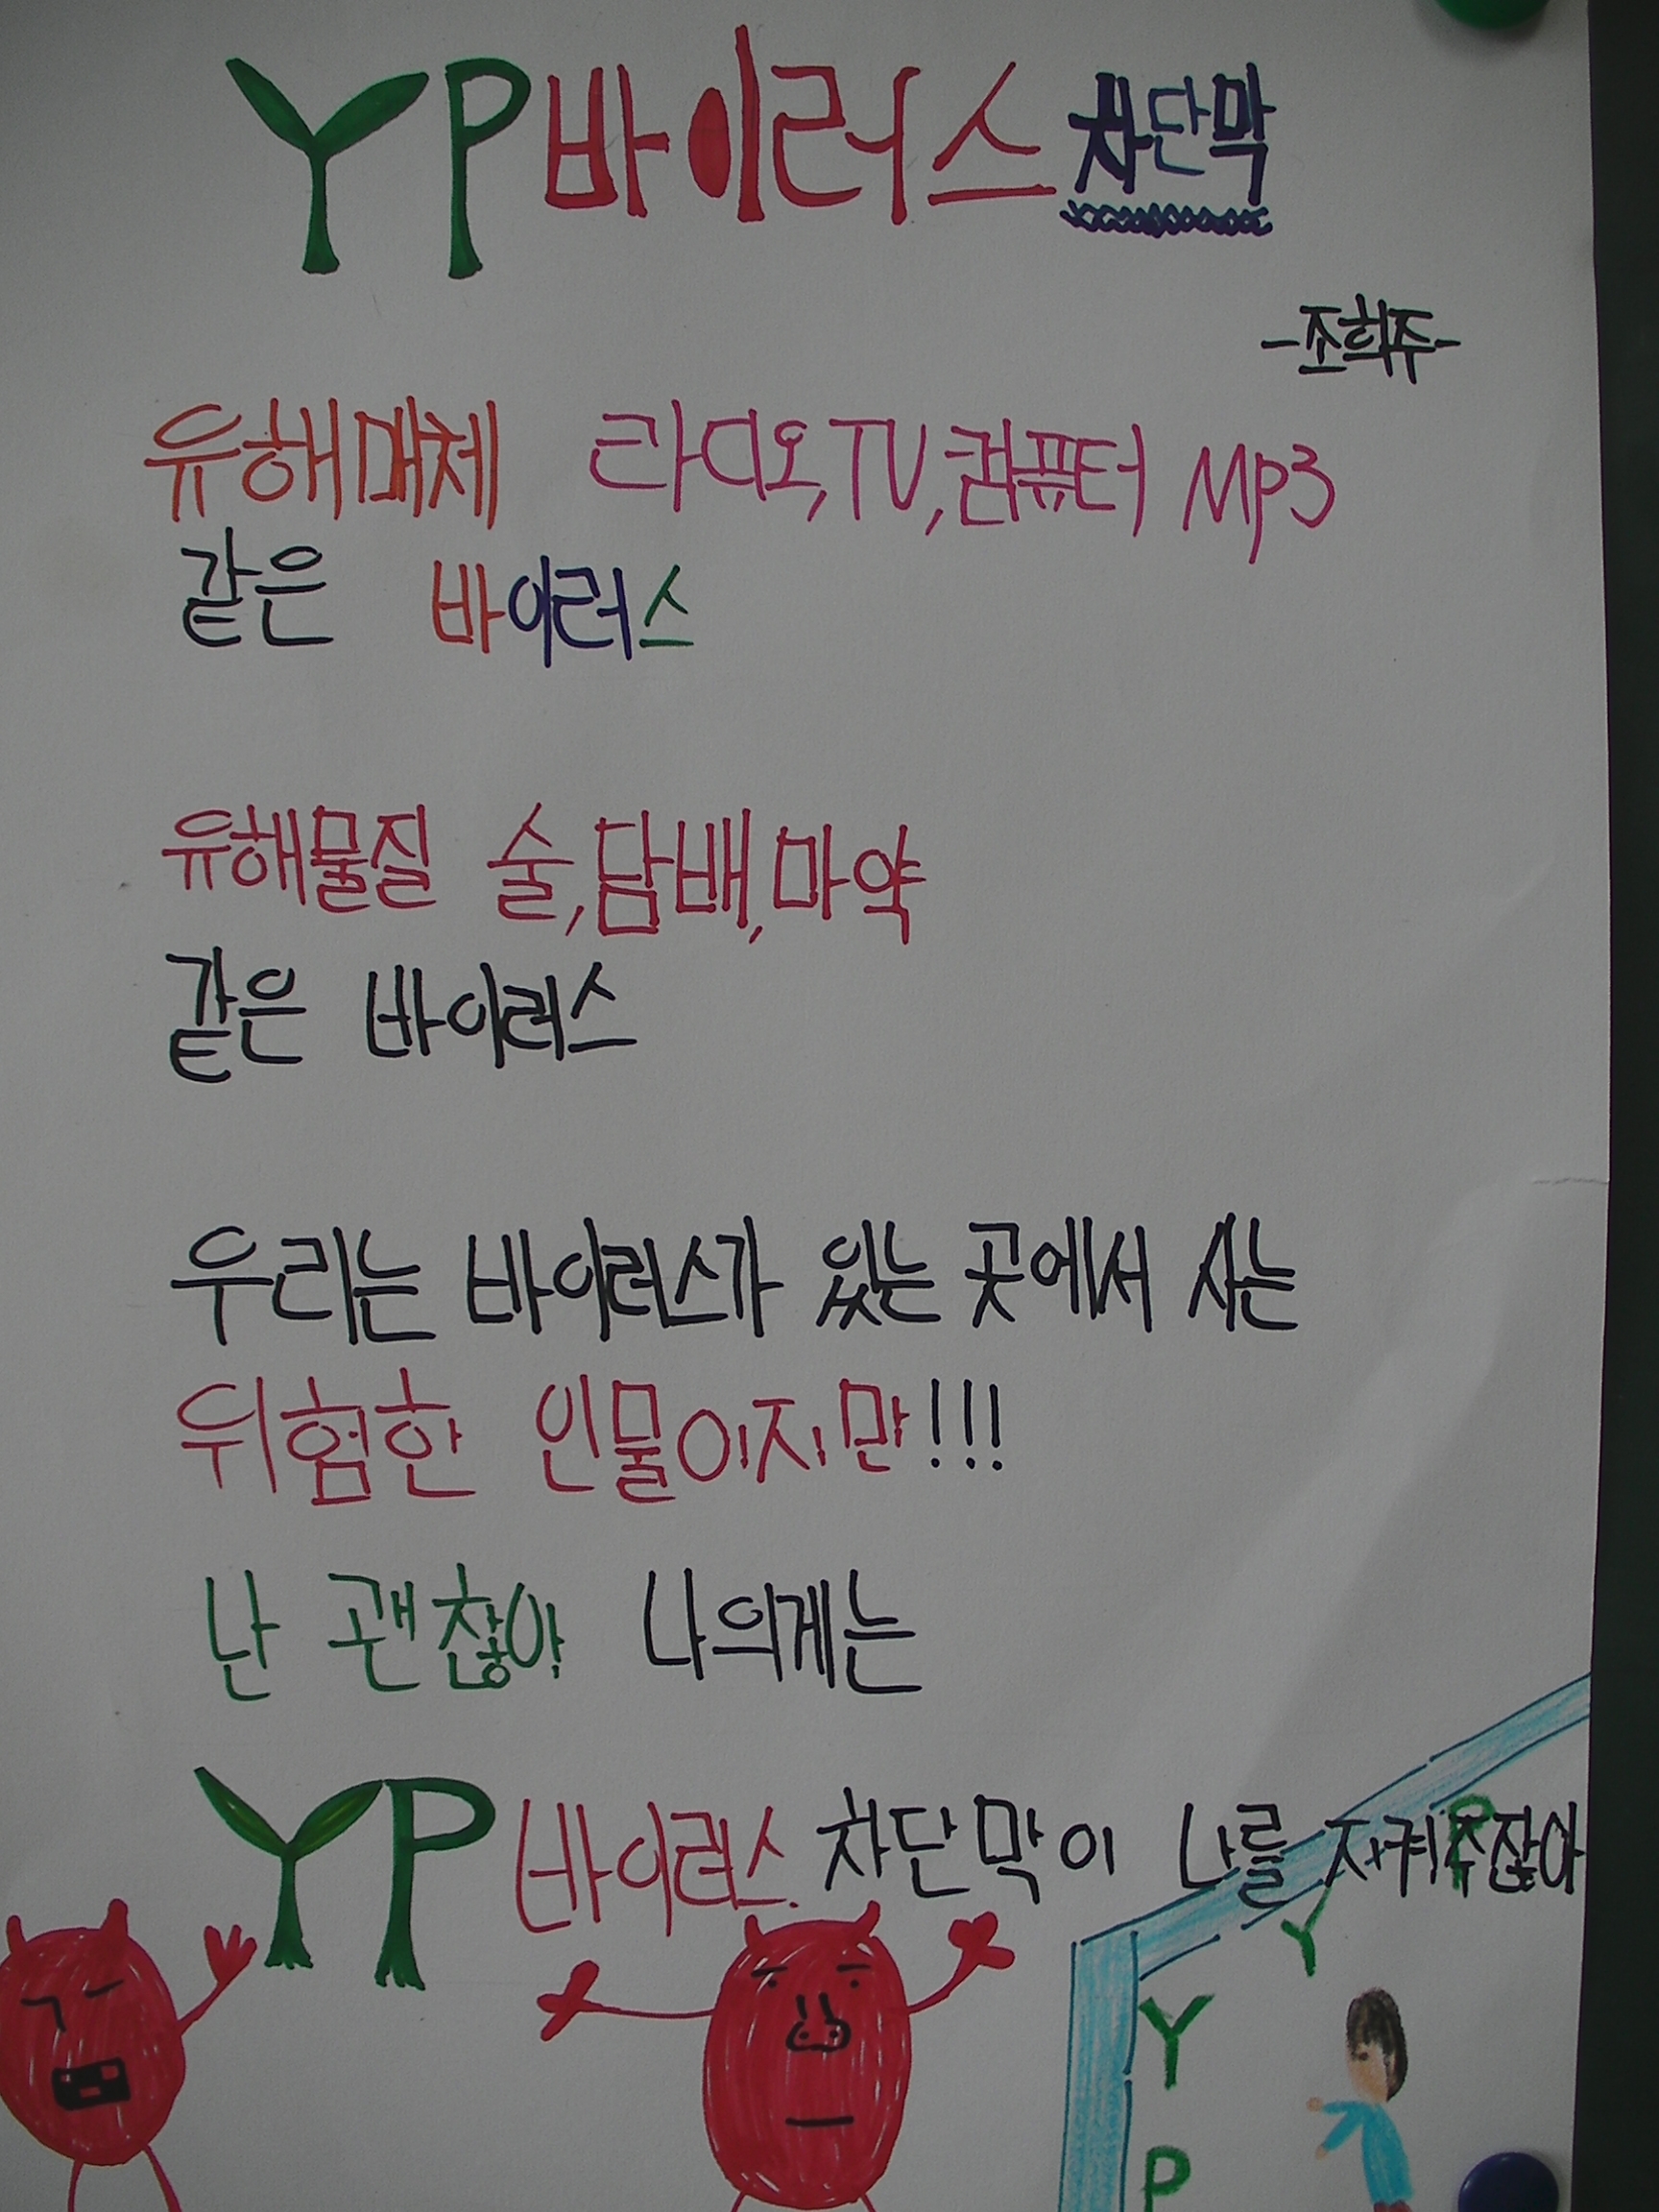 YP바이러스 차단막
-조희주-
유해매체 라디오,TV,컴퓨터 MP3
같은 바이러스
유해물질 술,담배,마약
같은 바이러스
우리는 바이러스가 있는 곳에서 사는
위험한 인물이지만!!!
난 괜찮아 나의게는
YP바이러스 차단막이 나를 지켜주잖아
P
Y
Y
P